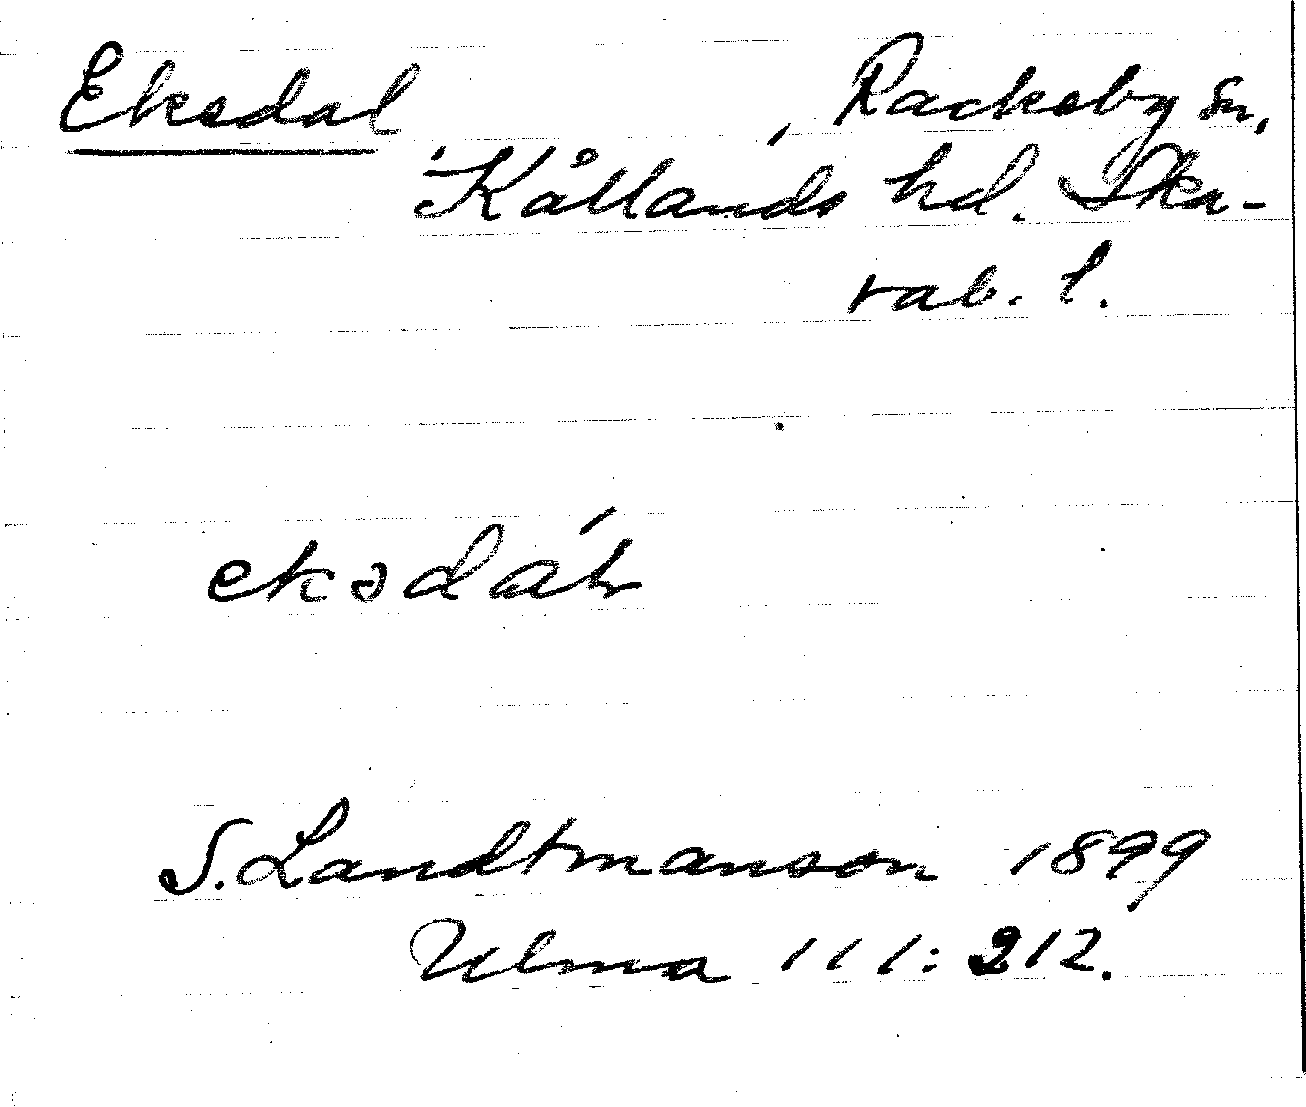 Eksdal, Rackeby sn,
Kållands hd. Ska-
rab. l.
eksdáɫ
S. Landtmanson 1899
Ulma 111:212.